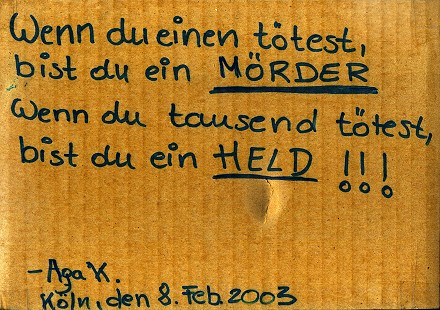 Wenn du einen tötest,
bist du ein MÖRDER
Wenn du tausend tötest,
bist du ein HELD !!!
- Aga K.
Köln, den 8. Feb. 2003